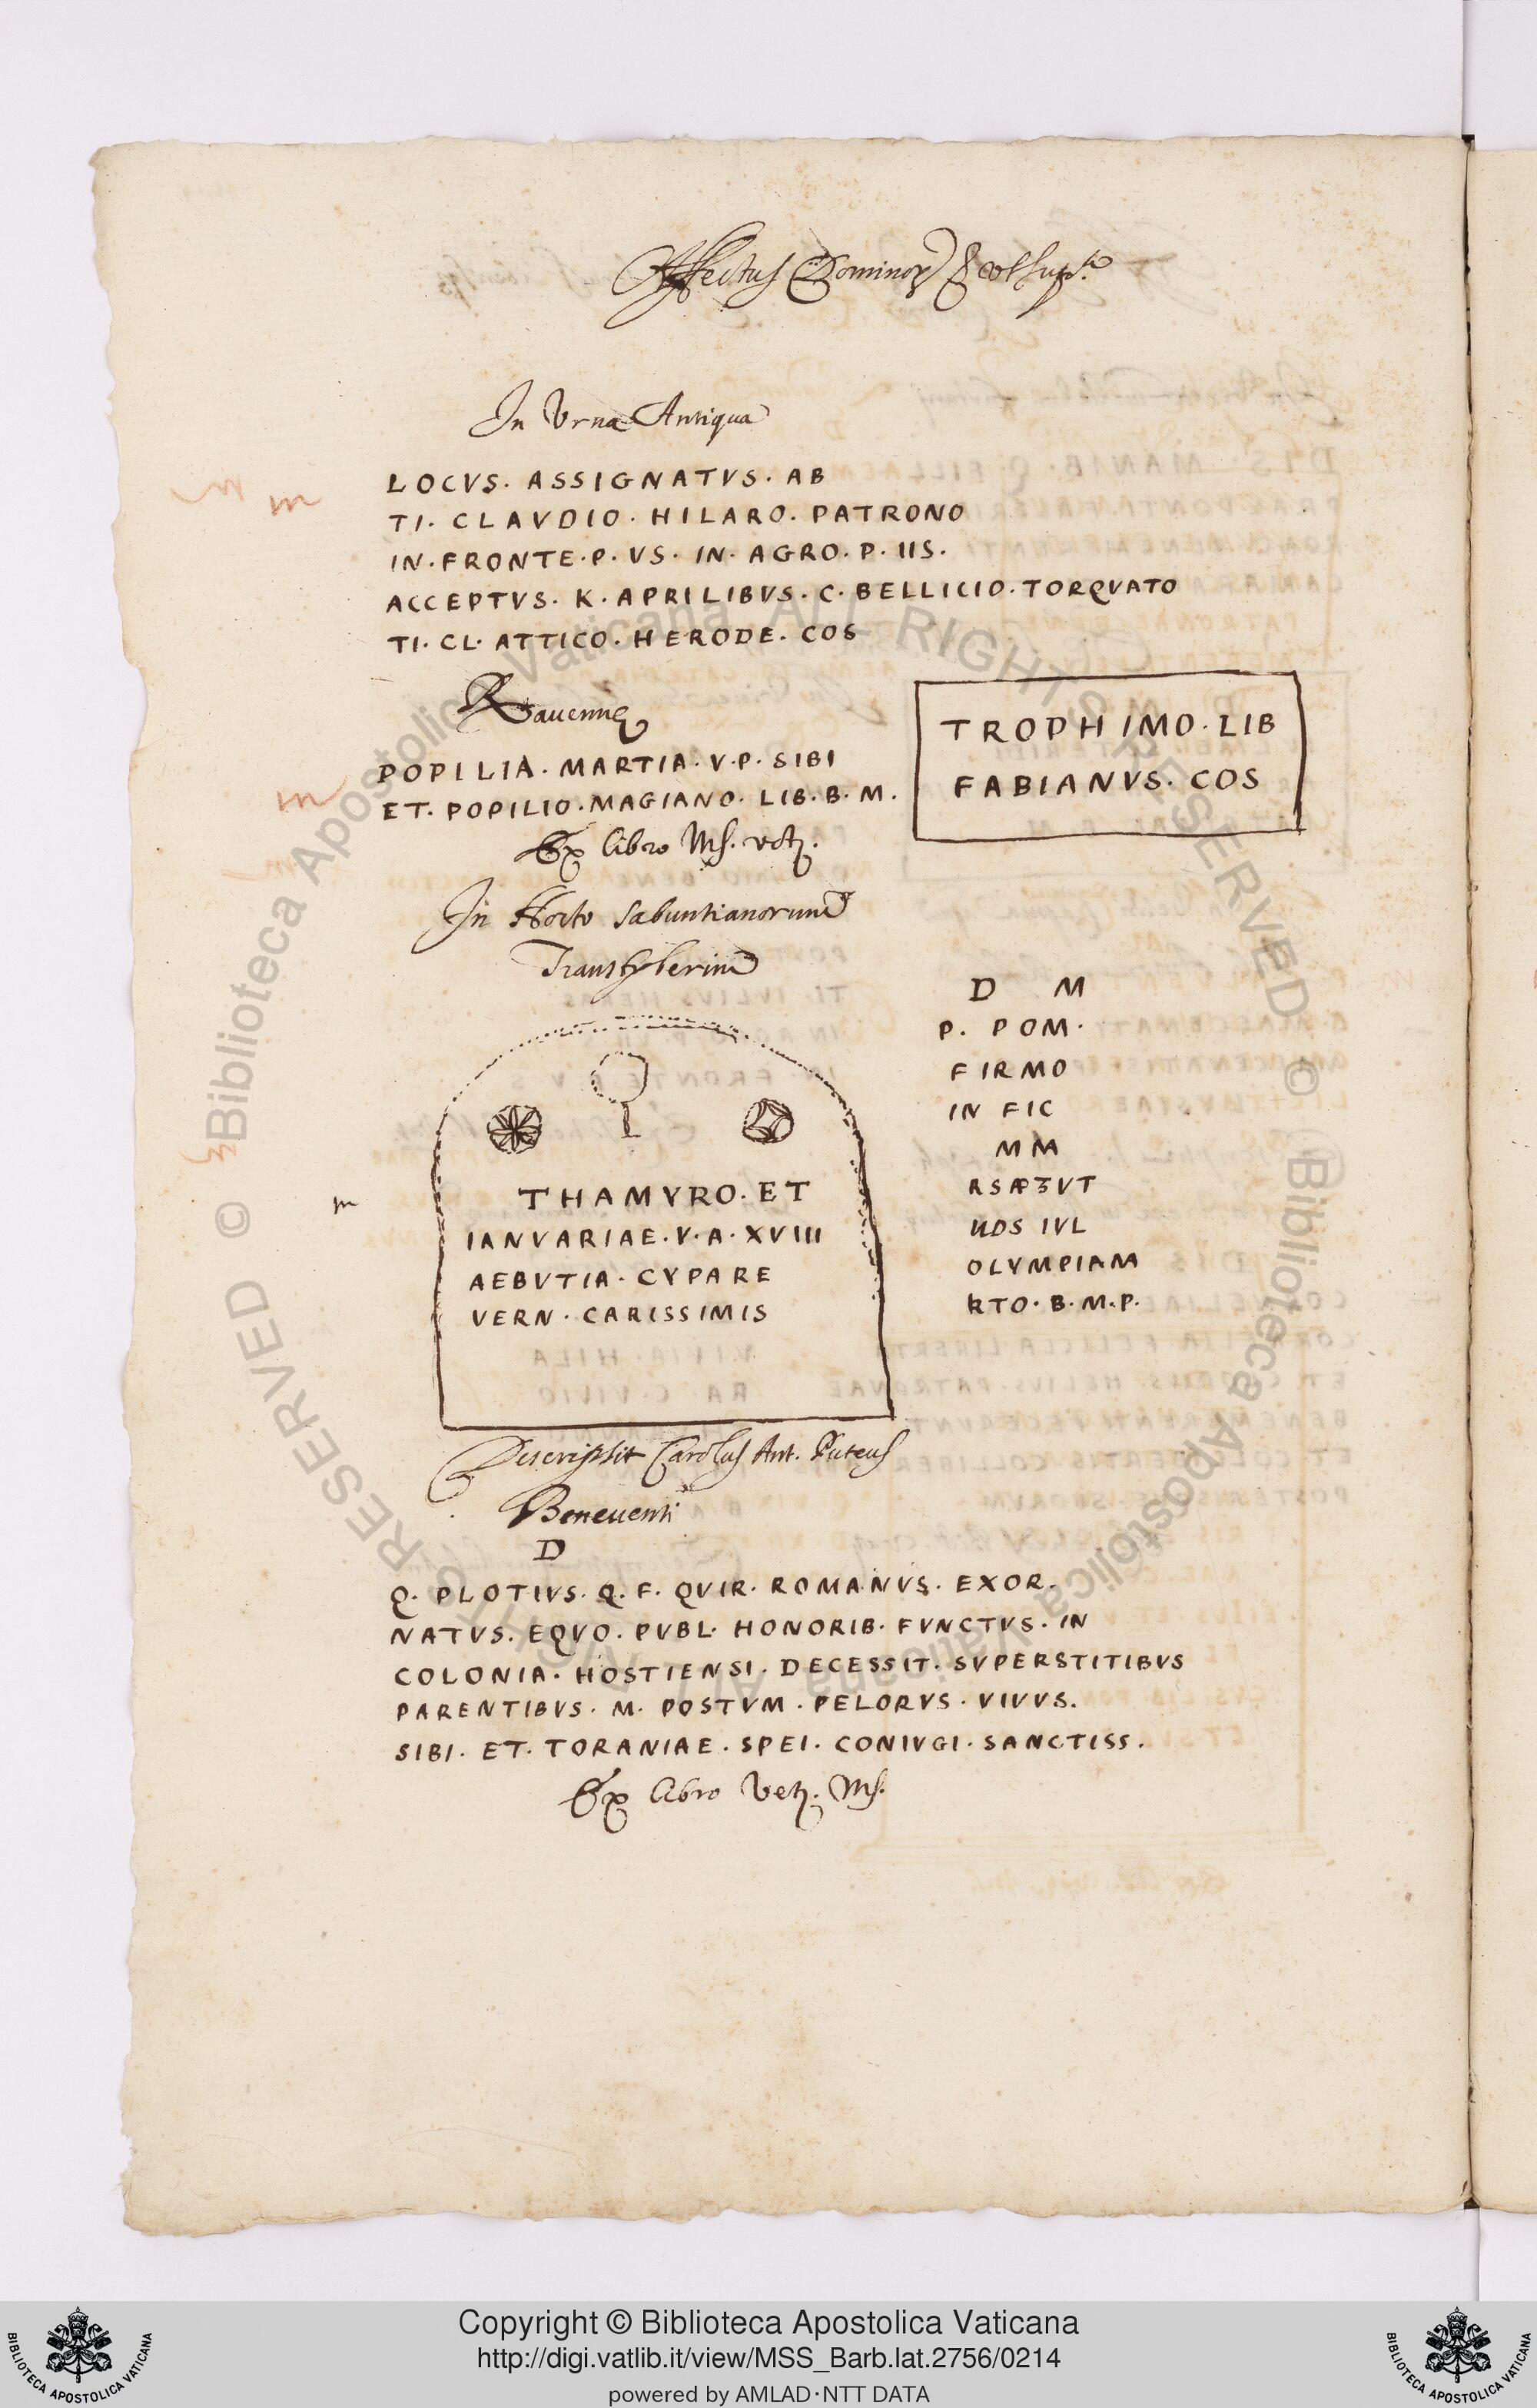 Affectus Dominor
In Vrna Antiqua
LOCVS. ASSIGNATVS. AB
TI. CLAVDIO. HILARO. PATRONO
IN. FRONTE. P. VS. IN. AGRO. P. IIS.
ACCEPTVS. K. APRILIBVS. C. BELLICIO. TORQVATO
TI. CL. ATTICO. HERODE. COS
Rauennę
POPILIA. MARTIA. V. P. SIBI
ET. POPILIO. MAGIANO. LIB. B. M.
Ex libro Ms.
TROPHIMO. LIB
FABIANVS. COS
In Horto Sabuntianorum
Transtyberim
THAMYRO. ET
IANVARIAE. V. A. XVIII
AEBVTIA. CYPARE
VERN. CARISSIMIS
Descripsit Carolus Ant. Puteus
D M
P. POM.
FIRMO
IN FIC
MM
OLYMPIAM
RTO. B. M. P.
Beneuenti
D
Q. PLOTIVS. Q. F. QVIR. ROMANVS. EXOR.
NATVS. EQVO. PVBL. HONORIB. FVNCTVS. IN
COLONIA. HOSTIENSI. DECESSIT. SVPERSTITIBVS
PARENTIBVS. M. POSTVM. PELORVS. VIVVS.
SIBI. ET. TORANIAE. SPEI. CONIVGI. SANCTISS.
Ex libro Vet. Ms.
© Biblioteca Apostolica Vaticana ALL RIGHTS RESERVED
© Biblioteca Apostolica Vaticana ALL RIGHTS RESERVED
Copyright © Biblioteca Apostolica Vaticana
http://digi.vatlib.it/view/MSS_Barb.lat.2756/0214
powered by AMLAD·NTT DATA
BIBLIOTECA APOSTOLICA VATICANA
BIBLIOTECA APOSTOLICA VATICANA